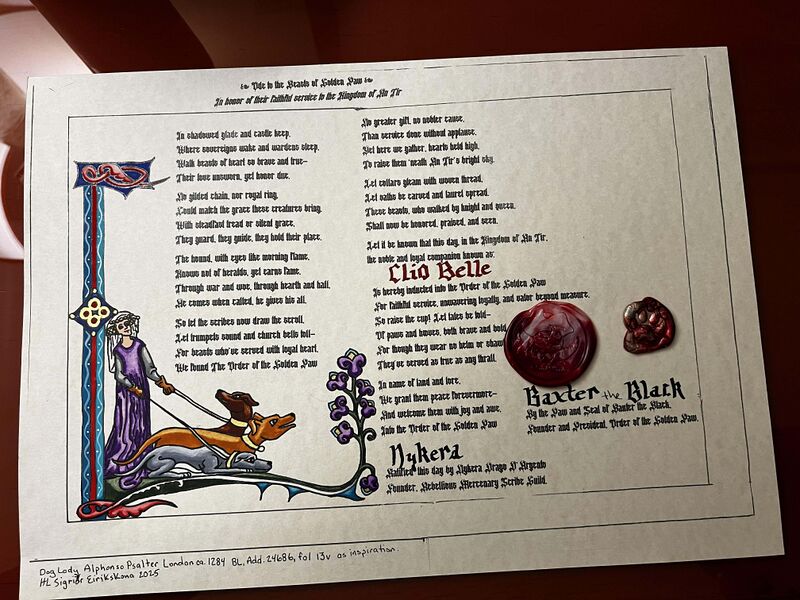 Ode to the Beasts of Golden Paw
In honor of their faithful service to the Kingdom of An Tir
In shadowed glade and castle keep,
Where sovereigns wake and wardens sleep,
Walk beasts of heart so brave and true—
Their love unsworn, yet honor due.
No gilded chain, nor royal ring,
Could match the grace these creatures bring.
With steadfast tread or silent grace,
They guard, they guide, they hold their place.
The hound, with eyes like morning flame,
Knows not of heralds, yet earns fame.
Through war and woe, through hearth and hall,
He comes when called, he gives his all.
So let the scribes now draw the scroll,
Let trumpets sound and church bells toll—
For beasts who've served with loyal heart,
We found The Order of the Golden Paw
No greater gift, no nobler cause,
Than service done without applause.
Yet here we gather, hearts held high,
To raise them 'neath An Tir's bright sky.
Let collars gleam with woven thread,
Let oaths be carved and laurel spread.
These beasts, who walked by knight and queen,
Shall now be honored, praised, and seen.
Let it be known that this day, in the Kingdom of An Tir,
the noble and loyal companion known as:
Clio Belle
Is hereby inducted into the Order of the Golden Paw
For faithful service, unwavering loyalty, and valor beyond measure.
So raise the cup! Let tales be told—
Of paws and hooves, both brave and bold,
For though they wear no helm or
They've served as true as any thrall.
In name of land and lore,
We grant them peace forevermore—
And welcome them with joy and awe,
Into the Order of the Golden Paw
Nykera
Ratified this day by Nykera Drago D'Argento
Founder, Rebellious Mercenary Scribe Guild.
Baxter the Black
By the Paw and Seal of Baxter the Black,
Founder and President, Order of the Golden Paw.
Dog Lady Alphonso Psalter London ca. 1284 BL, Add. 24686, fol 13v as inspiration.
HL Sigriðr Eirikskona 2025